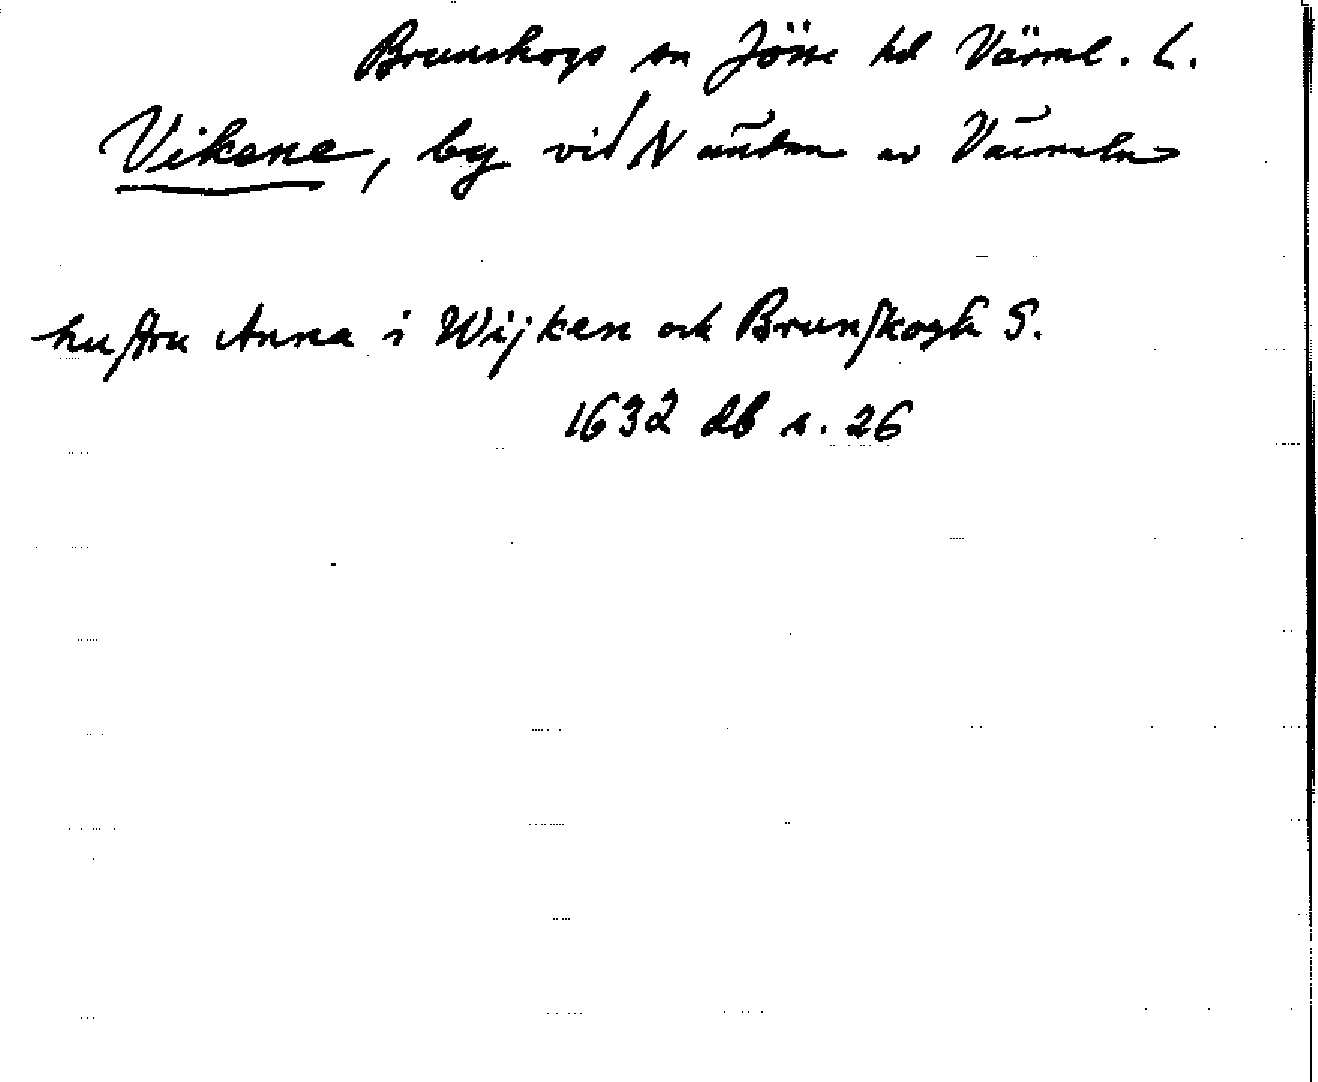 Brunskogs sn Jösse hd Värml. L.
Vikene, by vid N ändan av Värmeln
hustru Anna i Wijken och Brunskogh S.
1632 db s. 26